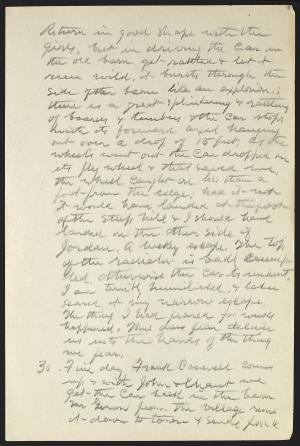 Return in good shape with the
girls, but in driving the car in
the old barn get rattled & let it
run wild, it bursts through the
side of the barn like an explosion:
there is a great splintering & rattling
of boards & timbers & the car stops
with its forward end hanging
out over a drop of 15 feet. As the
wheels went out the car dropped on
its fly wheel & that saved me,
the wheel caught on less than a
foot from the edge. had it not
it would have landed at the foot
of the steep hill & I should have
landed on the other side of
Jordan. A lucky escape. The top
of the radiator is bad
otherwise the car is unhurt.
I am terribly humiliated, & later
scared at my narrow escape.
The thing I had feared for weeks
happened. Thus does fear deliver
us into the hands of the thing
we fear.
30. Fine day, Frank Caswell comes
up & with John & we
get the car back in the barn
from the village runs
it down to town &